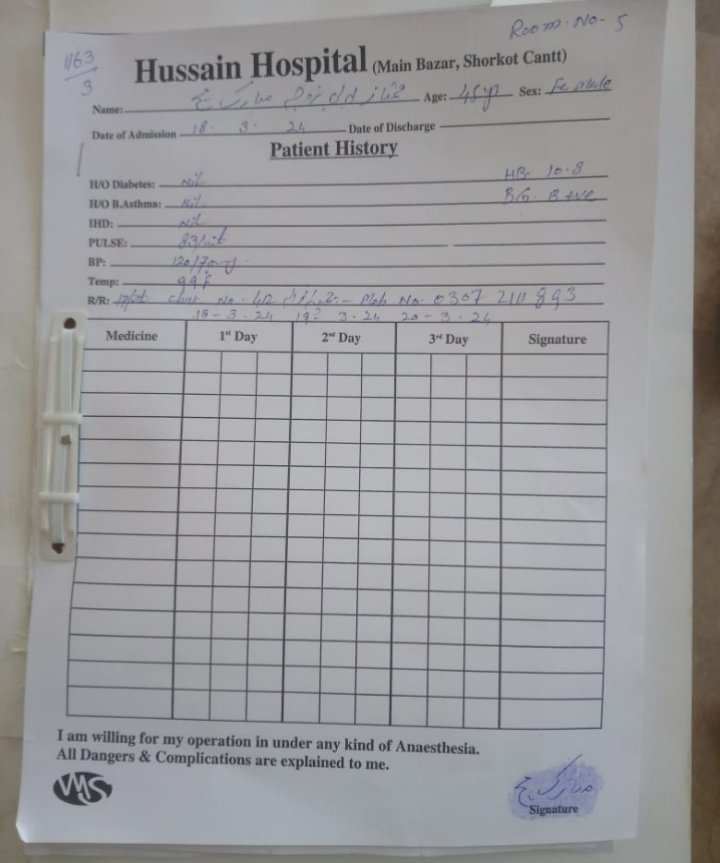 Room. No- 5
1163
3
Hussain Hospital (Main Bazar, Shorkot Cantt)
Name: ممتاز زوجہ مبارک Age: 45 yr Sex: Female
Date of Admission 18. 3. 24 Date of Discharge
Patient History
H/O Diabetes: Nil HB. 10.8
H/O B.Asthma: Nil B.G. B +ve
IHD: Nil
PULSE: 83/
BP: 120/70
Temp: 99 F
R/R: No. Mob No. 0307 2111893
18-3-24 19 3.24 20-3-24
Medicine 1st Day 2nd Day 3rd Day Signature
I am willing for my operation in under any kind of Anaesthesia.
All Dangers & Complications are explained to me.
VMS
مبارک
Signature